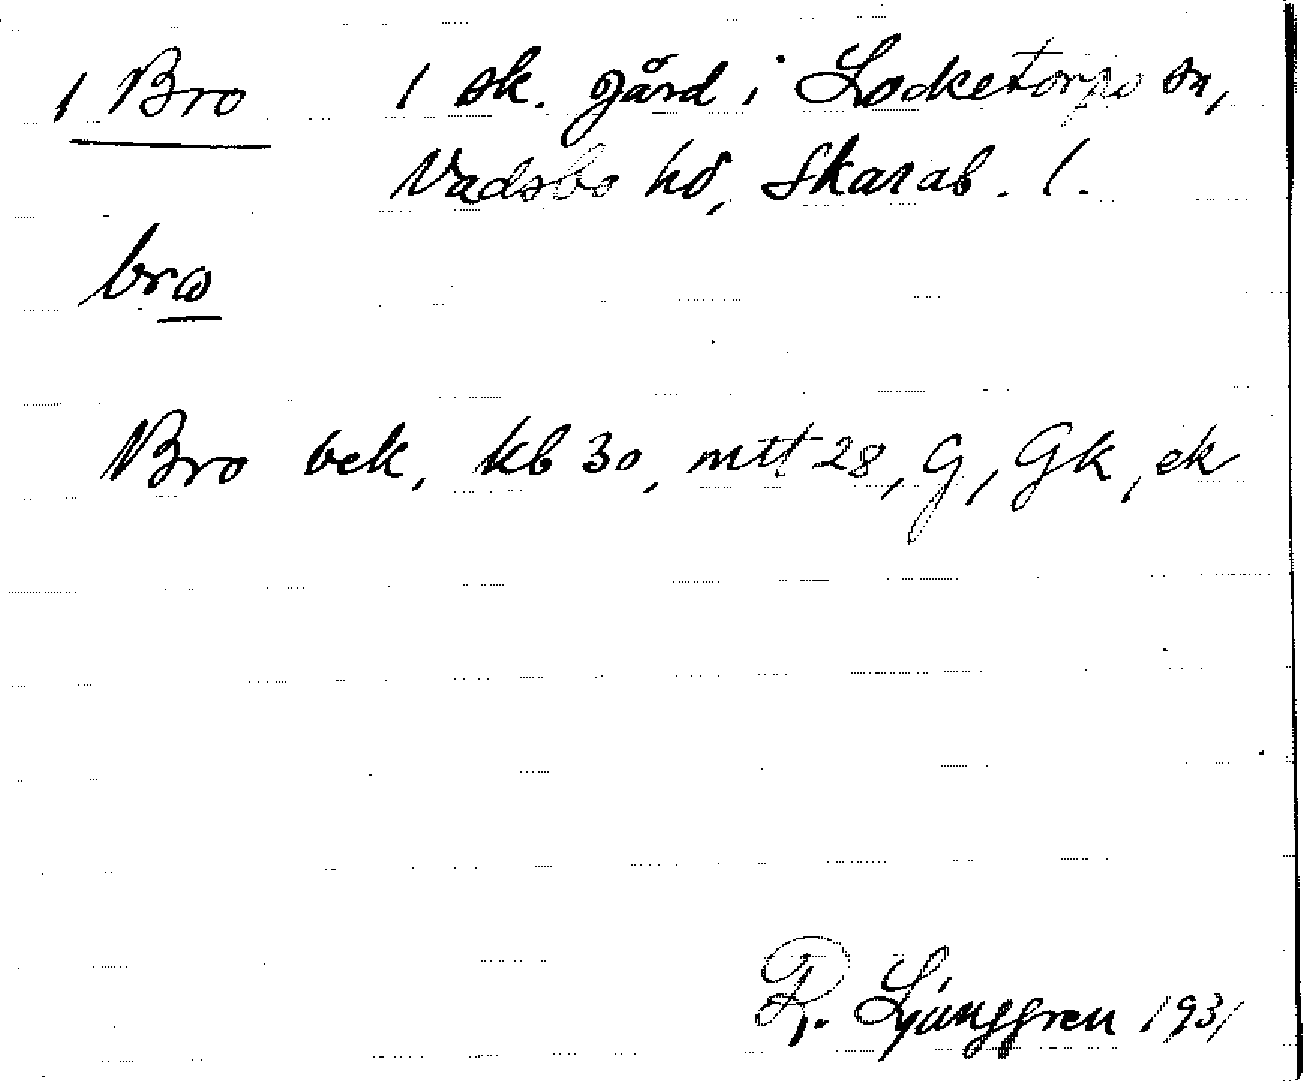 1 Bro 1 sk. gård i Locketorps sn,
Vadsbo hd, Skarab. l.
brω
Bro bek, kb 30, mtt 28, G, Gk, ek
R. Ljunggren 1931